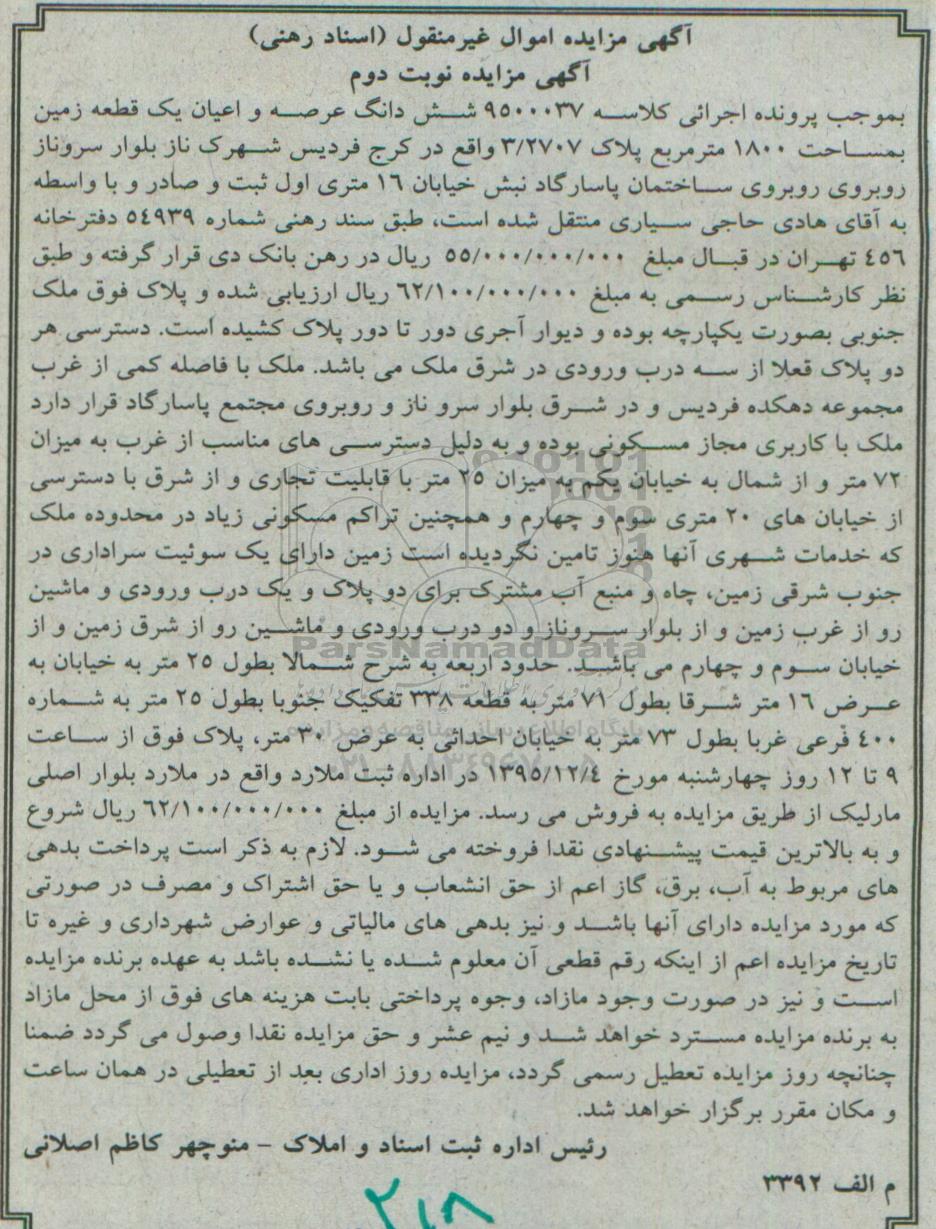 آگهی مزایده اموال غیرمنقول (اسناد رهنی)
آگهی مزایده نوبت دوم
بموجب پرونده اجرائی کلاسه ۹۵۰۰۰۳۷ شش دانگ عرصه و اعیان یک قطعه زمین
بمساحت ۱۸۰۰ مترمربع پلاک ۳/۲۷۰۷ واقع در کرج فردیس شهرک ناز بلوار سروناز
روبروی روبروی ساختمان پاسارگاد نبش خیابان ۱۶ متری اول ثبت و صادر و با واسطه
به آقای هادی حاجی سیاری منتقل شده است، طبق سند رهنی شماره ۵۴۹۳۹ دفترخانه
۴۵۶ تهران در قبال مبلغ ۵۵/۰۰۰/۰۰۰/۰۰۰ ریال در رهن بانک دی قرار گرفته و طبق
نظر کارشناس رسمی به مبلغ ۶۲/۱۰۰/۰۰۰/۰۰۰ ریال ارزیابی شده و پلاک فوق ملک
جنوبی بصورت یکپارچه بوده و دیوار آجری دور تا دور پلاک کشیده است. دسترسی هر
دو پلاک قعلا از سه درب ورودی در شرق ملک می باشد. ملک با فاصله کمی از غرب
مجموعه دهکده فردیس و در شرق بلوار سرو ناز و روبروی مجتمع پاسارگاد قرار دارد
ملک با کاربری مجاز مسکونی بوده و به دلیل دسترسی های مناسب از غرب به میزان
۷۲ متر و از شمال به خیابان یکم به میزان ۲۵ متر با قابلیت تجاری و از شرق با دسترسی
از خیابان های ۲۰ متری سوم و چهارم و همچنین تراکم مسکونی زیاد در محدوده ملک
که خدمات شهری آنها هنوز تامین نگردیده است زمین دارای یک سوئیت سراداری در
جنوب شرقی زمین، چاه و منبع آب مشترک برای دو پلاک و یک درب ورودی و ماشین
رو از غرب زمین و از بلوار سروناز و دو درب ورودی و ماشین رو از شرق زمین و از
خیابان سوم و چهارم می باشد. حدود اربعه به شرح شمالا بطول ۲۵ متر به خیابان به
عرض ۱۶ متر شرقا بطول ۷۱ متر به قطعه ۳۳۸ تفکیک جنوبا بطول ۲۵ متر به شماره
۴۰۰ فرعی غربا بطول ۷۳ متر به خیابان احداثی به عرض ۳۰ متر، پلاک فوق از ساعت
۹ تا ۱۲ روز چهارشنبه مورخ ۱۳۹۵/۱۲/۴ در اداره ثبت ملارد واقع در ملارد بلوار اصلی
مارلیک از طریق مزایده به فروش می رسد. مزایده از مبلغ ۶۲/۱۰۰/۰۰۰/۰۰۰ ریال شروع
و به بالاترین قیمت پیشنهادی نقدا فروخته می شود. لازم به ذکر است پرداخت بدهی
های مربوط به آب، برق، گاز اعم از حق انشعاب و یا حق اشتراک و مصرف در صورتی
که مورد مزایده دارای آنها باشد و نیز بدهی های مالیاتی و عوارض شهرداری و غیره تا
تاریخ مزایده اعم از اینکه رقم قطعی آن معلوم شده یا نشده باشد به عهده برنده مزایده
است و نیز در صورت وجود مازاد، وجوه پرداختی بابت هزینه های فوق از محل مازاد
به برنده مزایده مسترد خواهد شد و نیم عشر و حق مزایده نقدا وصول می گردد ضمنا
چنانچه روز مزایده تعطیل رسمی گردد، مزایده روز اداری بعد از تعطیلی در همان ساعت
و مکان مقرر برگزار خواهد شد.
رئیس اداره ثبت اسناد و املاک – منوچهر کاظم اصلانی
م الف ۳۳۹۲
۲۱۸
ParsNamadData